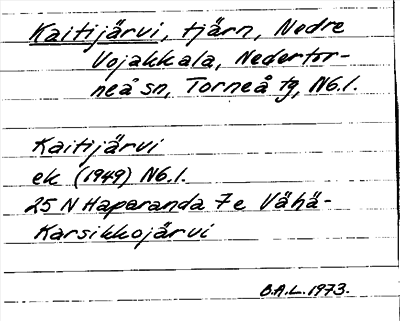 Kaitijärvi, tjärn, Nedre
Vojakkala, Nedertor-
neå sn, Torneå tg, Nb.l.
Kaitijärvi
ek (1949) Nb.l.
25 N Haparanda 7e Vähä-
Karsikkojärvi
B.A.L. 1973.